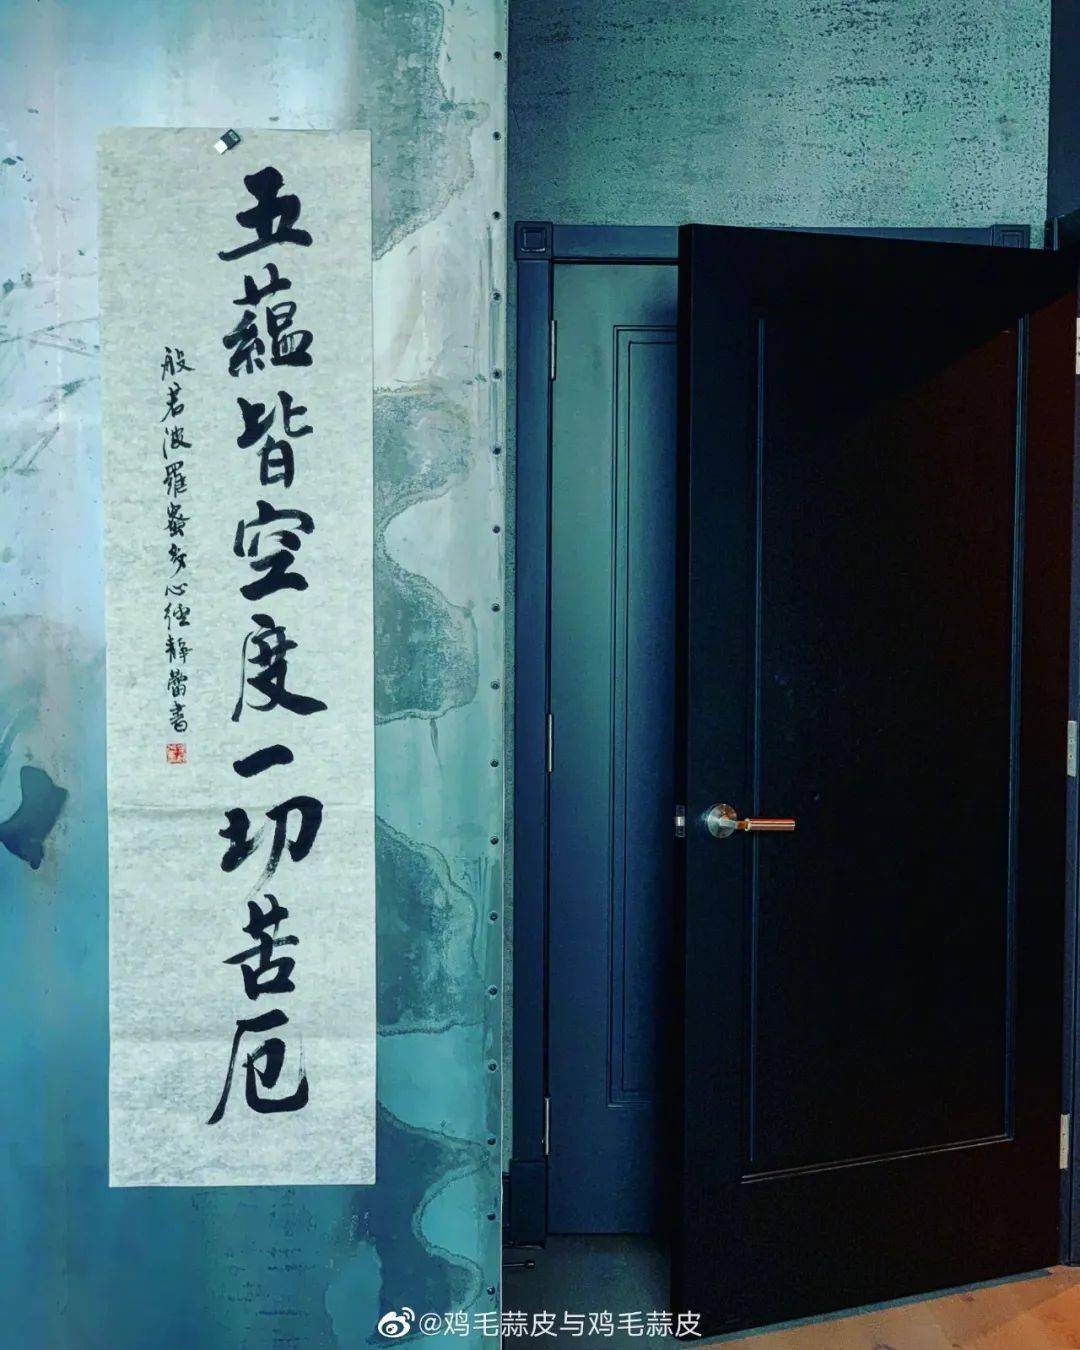 五蘊皆空度一切苦厄
般若波羅蜜多心經靜蕾書
@鸡毛蒜皮与鸡毛蒜皮